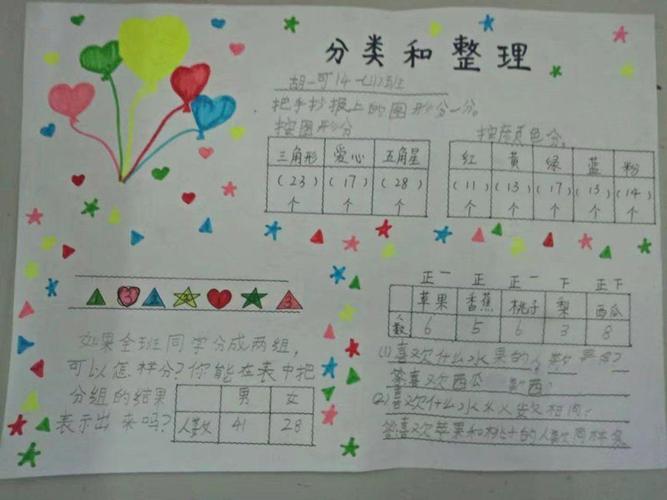 分类和整理
胡一可 一(4)班
把手抄报上的图形分一分。
按图形分
三角形 爱心 五角星
(23) (17) (28)
个 个 个
按颜色分。
红 黄 绿 蓝 粉
(11) (13) (17) (13) (14)
个 个 个 个 个
1 3 2 2 1 3
如果全班同学分成两组,
可以怎样分?你能在表中把
分组的结果
表示出来吗?
男 女
人数 41 28
正一 正 正一 下 正下
苹果 香蕉 桃子 梨 西瓜
人数 6 5 6 3 8
(1)喜欢什么水果的人数最多?
答喜欢西瓜
(2)喜欢什么水果人数相同?
答喜欢苹果和桃子的人数同样多